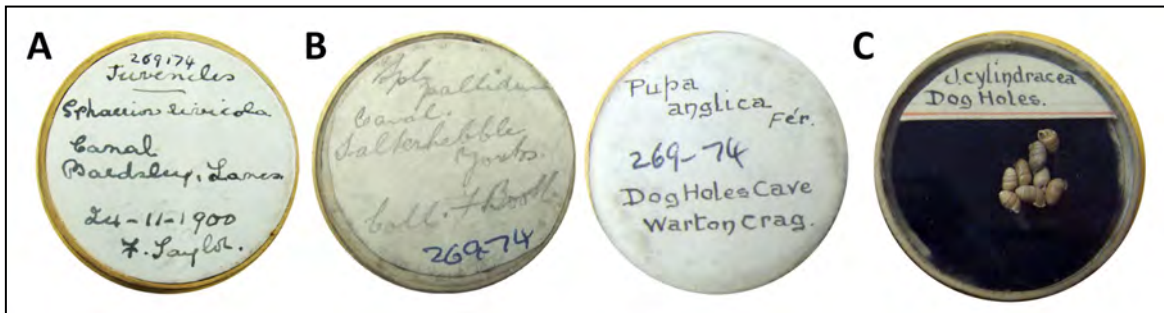 A
269.74
Juveniles
Sphaerium rivicola
Canal
Bardsley, Lancs.
24-11-1900
F. Taylor.
B
Sph. pallidum
Canal.
Salterhebble
Yorks.
Coll. F. Booth.
269-74
Pupa
anglica
Fér.
269-74
Dog Holes Cave
Warton Crag.
C
J. cylindracea
Dog Holes.